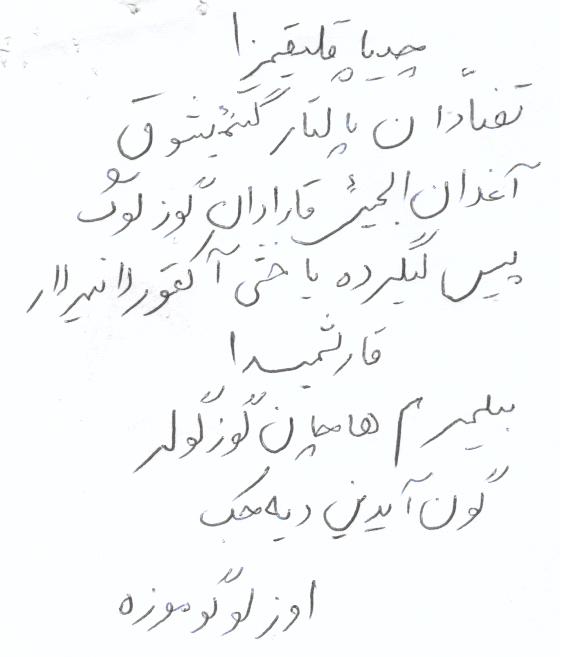 چدیا قلیقمیزا
تفنادان پالتار گئنمیشوق
آغدان الجیئ قارادان گوز لوک
پیس گیلرده یا خئی آ کقورا نیرلار
قارشمیدا
بیلمیرم هاچان گوز گولر
گون آیدین دیه جک
اوز لوگوموزه